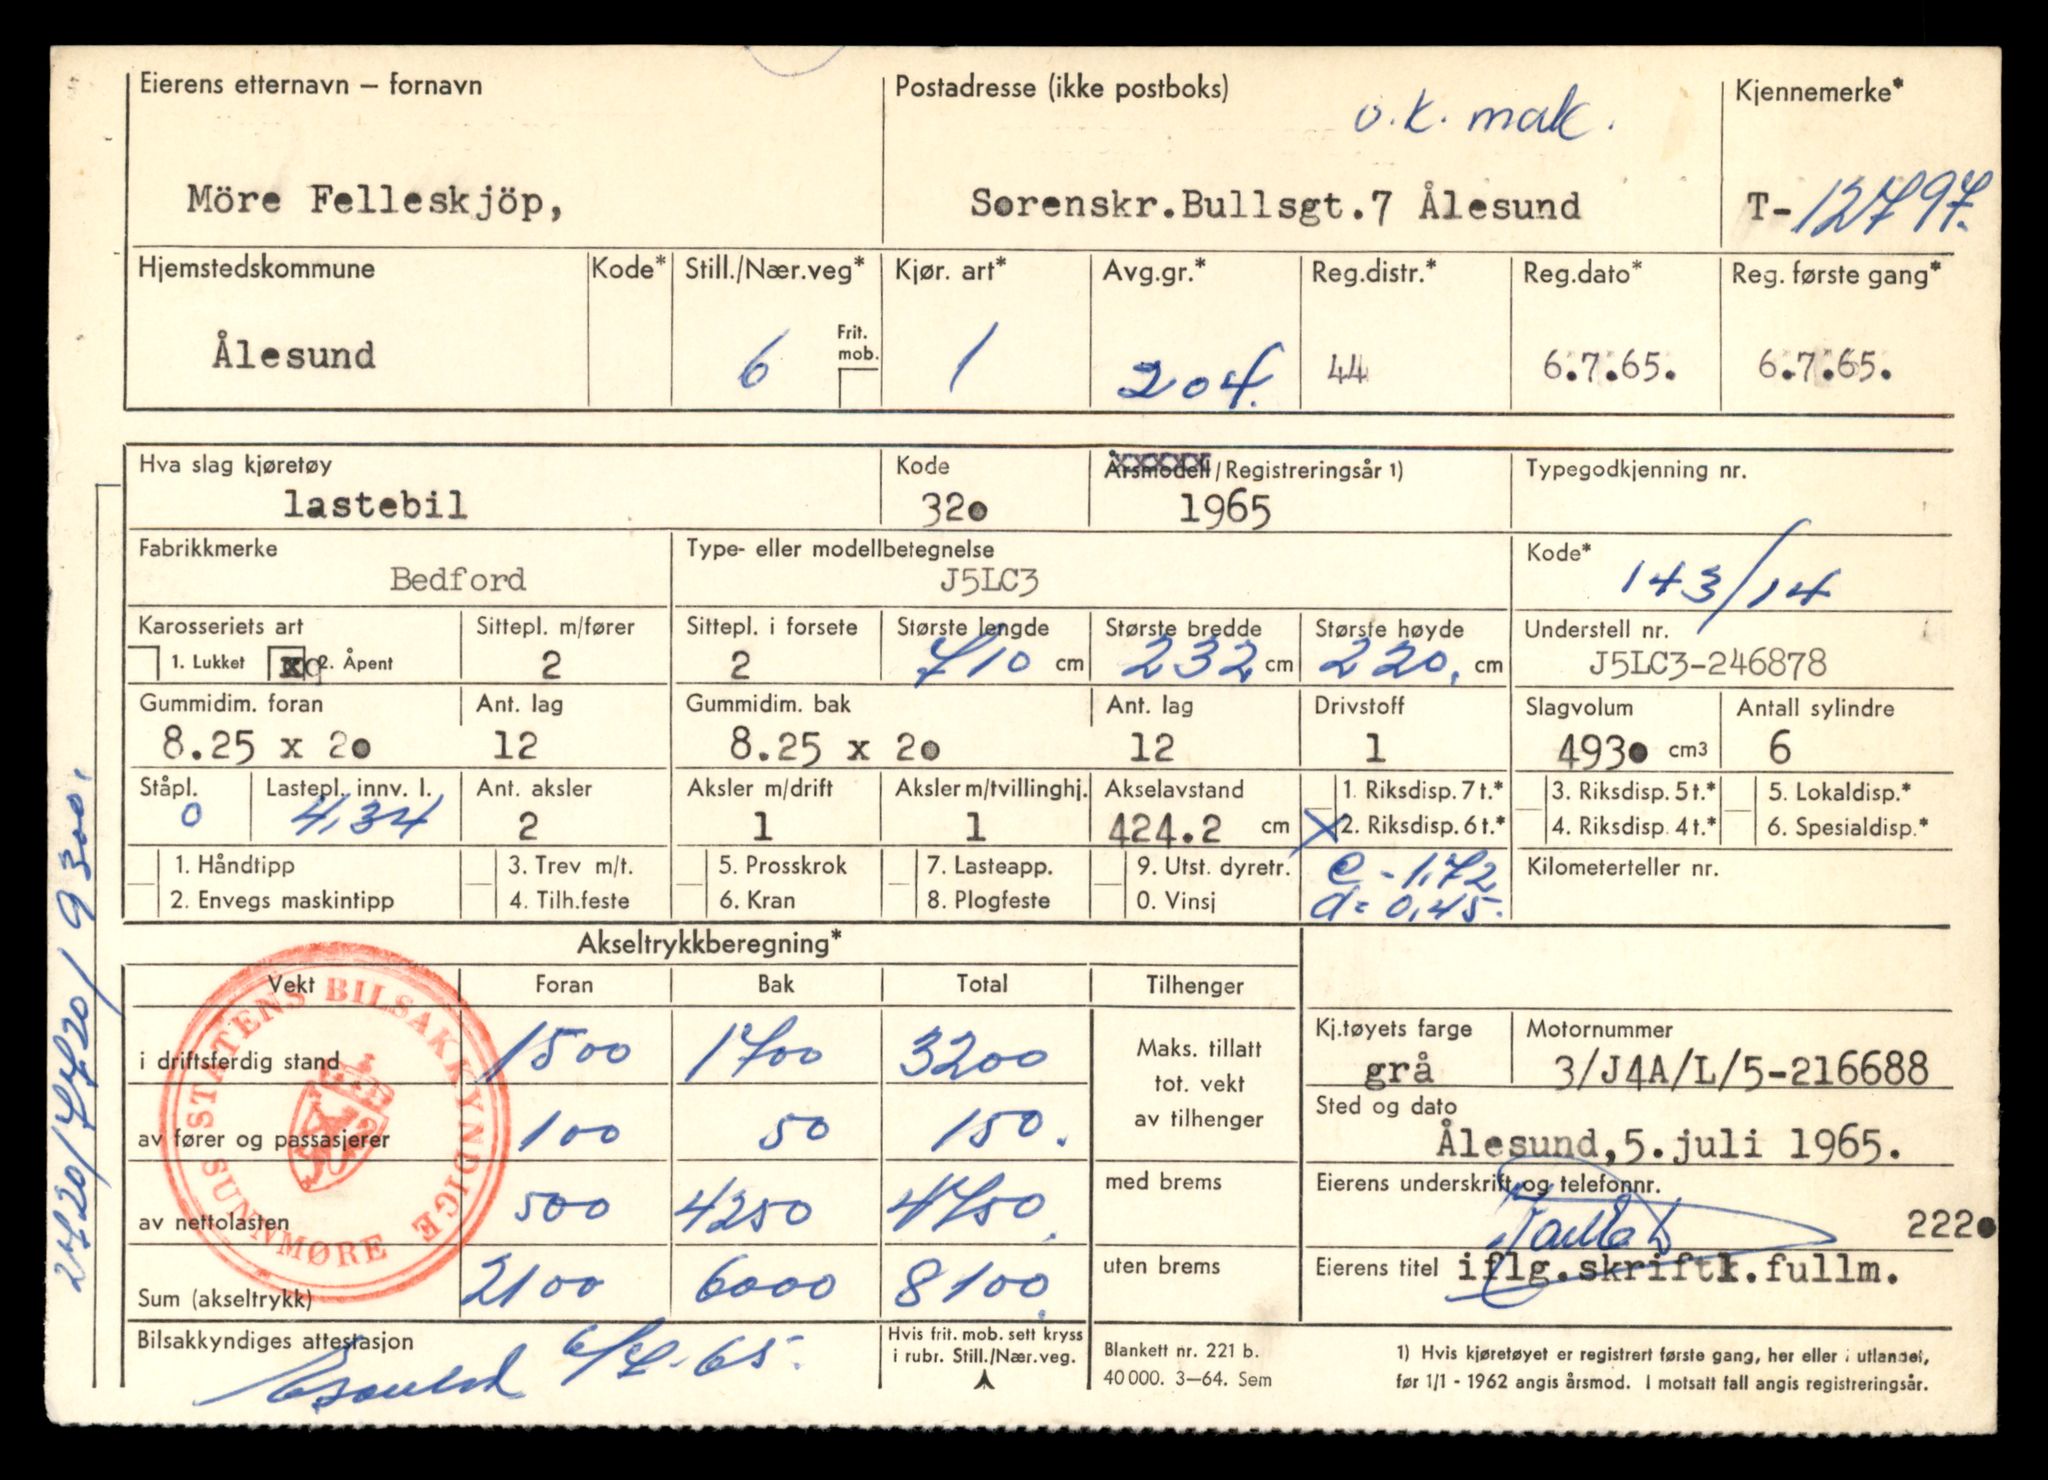 Eierens etternavn – fornavn
Postadresse (ikke postboks)
o.k. mak.
Kjennemerke*
Möre Felleskjöp,
Sorenskr.Bullsgt.7 Ålesund
T-12797.
Hjemstedskommune Kode* Still./Nær.veg* Kjør. art* Avg.gr.* Reg.distr.* Reg.dato* Reg. første gang*
Frit. mob.
Ålesund 6 1 204. 44 6.7.65. 6.7.65.
Hva slag kjøretøy Kode Årsmodell/Registreringsår 1) Typegodkjenning nr.
lastebil 320 1965
Fabrikkmerke Type- eller modellbetegnelse Kode*
Bedford J5LC3 143/14
Karosseriets art Sittepl. m/fører Sittepl. i forsete Største lengde Største bredde Største høyde Understell nr.
1. Lukket x 2. Åpent 2 2 710 cm 232 cm 220. cm J5LC3-246878
Gummidim. foran Ant. lag Gummidim. bak Ant. lag Drivstoff Slagvolum Antall sylindre
8.25 x 20 12 8.25 x 20 12 1 4930 cm3 6
Ståpl. Lastepl. innv. l. Ant. aksler Aksler m/drift Aksler m/tvillinghj. Akselavstand 1. Riksdisp. 7 t.* 3. Riksdisp. 5 t.* 5. Lokaldisp.*
0 4,34 2 1 1 424.2 cm X 2. Riksdisp. 6 t.* 4. Riksdisp. 4 t.* 6. Spesialdisp.*
1. Håndtipp 3. Trev m/t. 5. Prosskrok 7. Lasteapp. 9. Utst. dyretr. e - 1,72 Kilometerteller nr.
2. Envegs maskintipp 4. Tilh.feste 6. Kran 8. Plogfeste 0. Vinsj d = 0,45.
Akseltrykkberegning*
Vekt Foran Bak Total Tilhenger
i driftsferdig stand 1500 1700 3200
av fører og passasjerer 100 50 150.
av nettolasten 500 4250 4750.
Sum (akseltrykk) 2100 6000 8100.
Maks. tillatt
tot. vekt
av tilhenger
med brems
uten brems
Kj.tøyets farge Motornummer
grå 3/J4A/L/5-216688
Sted og dato
Ålesund,5.juli 1965.
Eierens underskrift og telefonnr.
2220
Eierens titel iflg.skriftl.fullm.
Bilsakkyndiges attestasjon
6/7-65.
Hvis frit. mob. sett kryss
i rubr. Still./Nær.veg.
Blankett nr. 221 b.
40 000. 3–64. Sem
1) Hvis kjøretøyet er registrert første gang, her eller i utlandet,
før 1/1 - 1962 angis årsmod. I motsatt fall angis registreringsår.
STATENS BILSAKKYNDIGE
SUNNMØRE